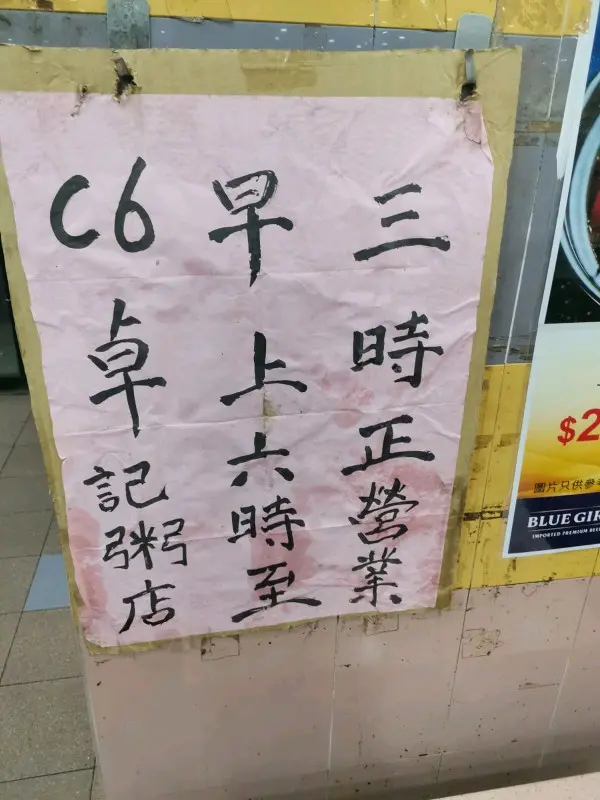 C6卓記粥店
早上六時至
三時正營業
$2
圖片只供參
BLUE GIR
IMPORTED PREMIUM BEE